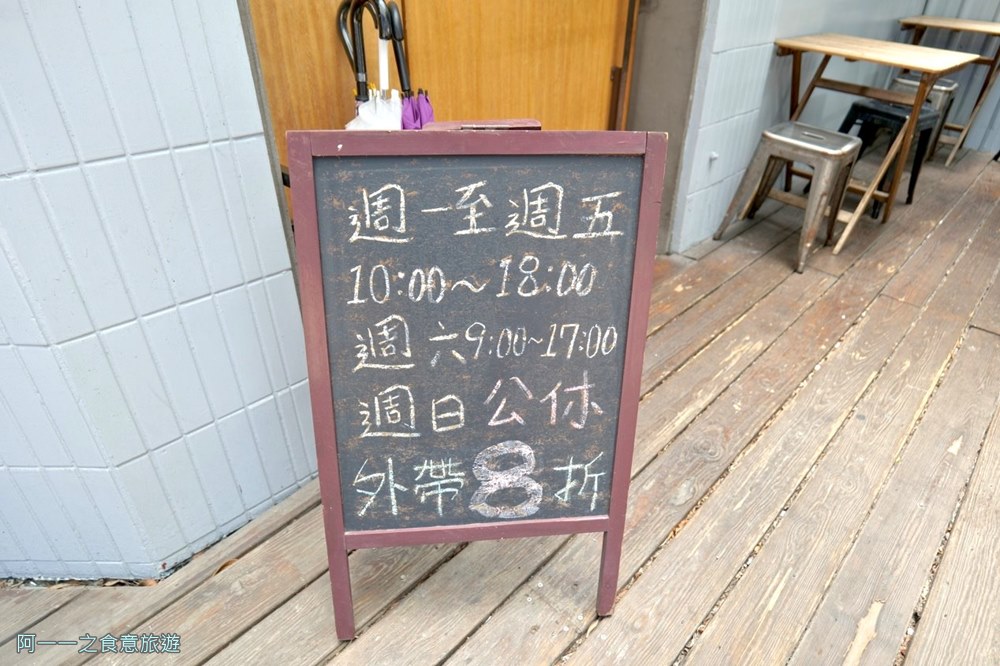 週一至週五
10:00~18:00
週六9:00~17:00
週日公休
外帶8折
阿一一之食意旅遊